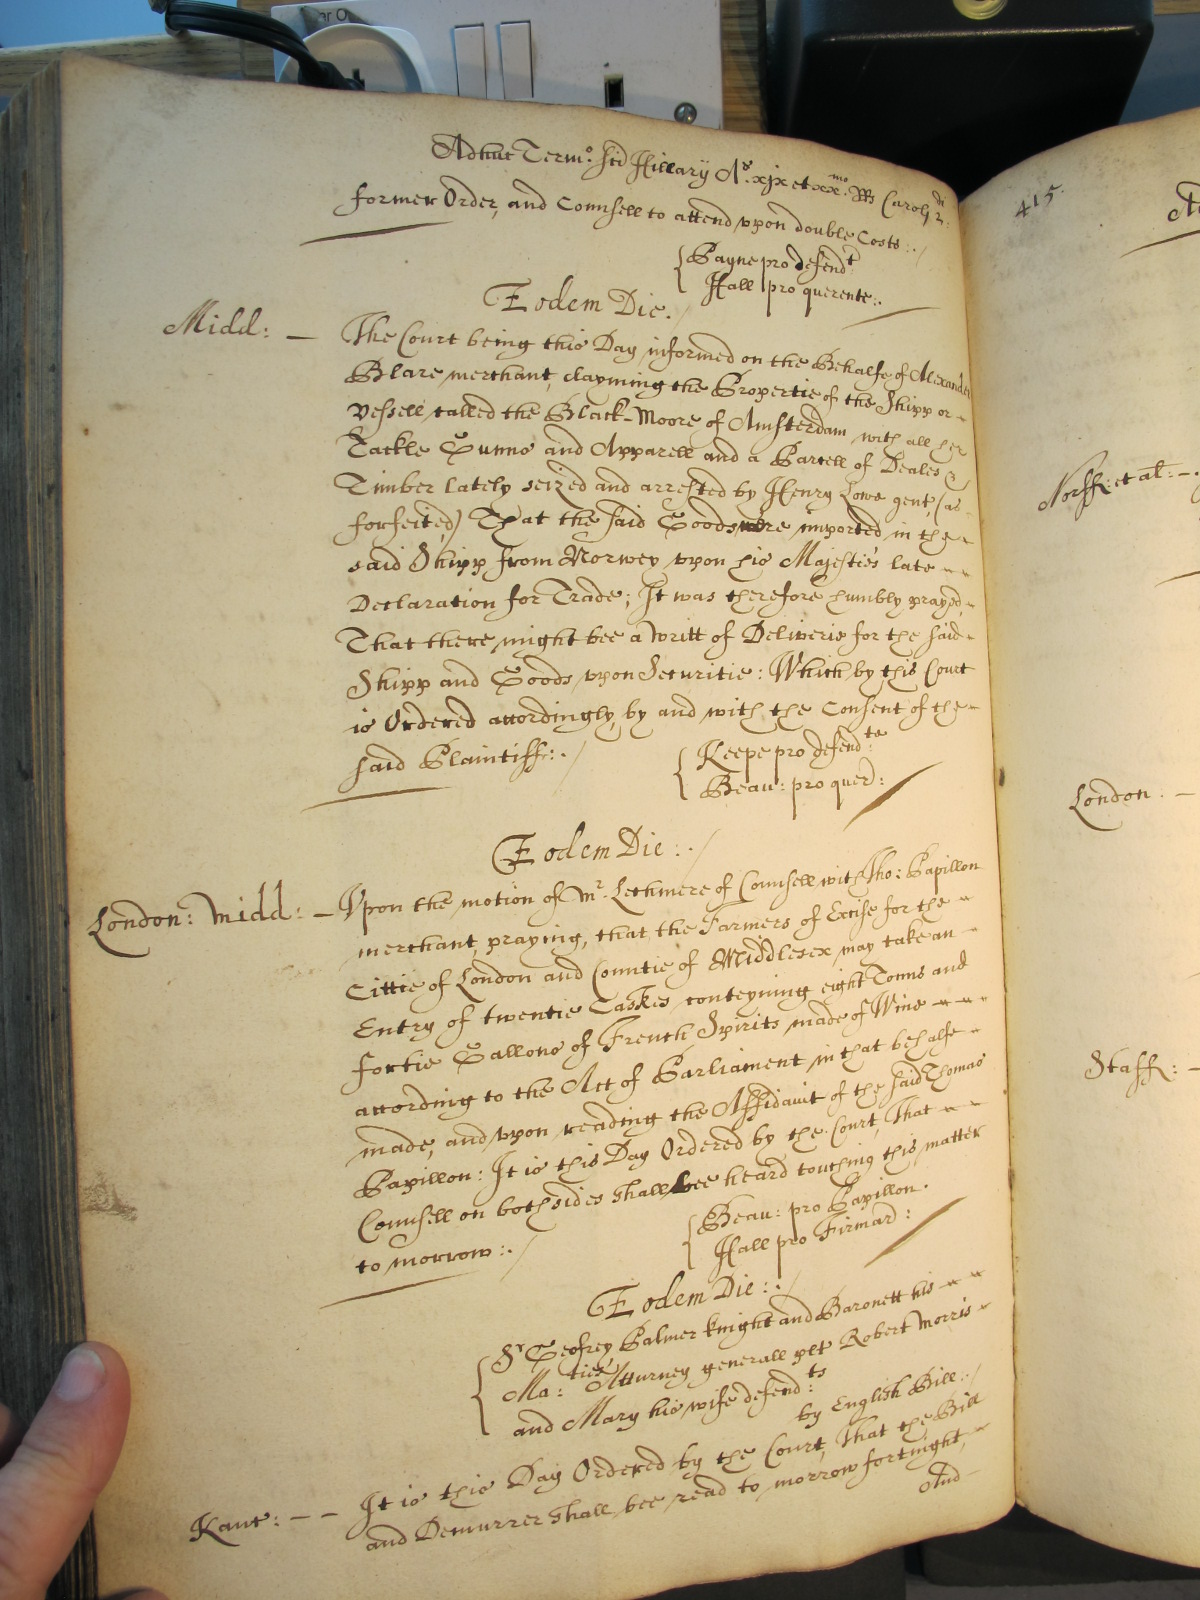 Adhuc Term.o Scd Hillarij Ao. xix et xx.mo RRs Caroli 2.di
former Order, and Counsell to attend upon double Costs :./
Payne pro defend.t
Hall pro querente:.
Eodem Die./
Midd: — The Court being this Day informed on the Behalfe of Alexander
Blare merchant, clayming the Propertie of the Shipp or
Vessell called the Black-Moore of Amsterdam with all her
Tackle Gunns and Apparell and a Parcell of Deales &
Timber lately seized and arrested by Henry Lowe gent, (as
forfeited) That the said Goods were imported in the
said Shipp from Norwey upon his Majesties late
Declaration for Trade; It was therefore humbly prayed,
That there might bee a Writt of Deliverie for the said
Shipp and Goods upon Securitie: Which by this Court
is Ordered accordingly, by and with the Consent of the
said Plaintiffe:./
Keepe pro defend:te
Beau: pro quer:
Eodem Die:./
London: Midd: — Upon the motion of Mr. Lechmere of Counsell with Tho: Papillon
merchant, praying, that the Farmers of Excise for the
Cittie of London and Countie of Middlesex may take an
Entry of twentie Caskes conteyning eight Tonns and
fortie Gallons of French Spirits made of Wine
according to the Act of Parliament in that behalfe
made, and upon reading the Affidavit of the said Thomas
Papillon: It is this Day Ordered by the Court, That
Counsell on both sides shall bee heard touching this matter
to morrow:./
Beau: pro Papillon.
Hall pro Firmar:
Eodem Die:./
Sr Geofrey Palmer knight and Baronett his
Ma:ties Atturney generall plt Robert Morris
and Mary his wife defend:ts
by English Bill:./
Kanc: — — It is this Day Ordered by the Court, That the Bill
and Demurrer shall bee read to morrow fortnight,
And
415.
Norff: et al: —
London: —
Staff: —